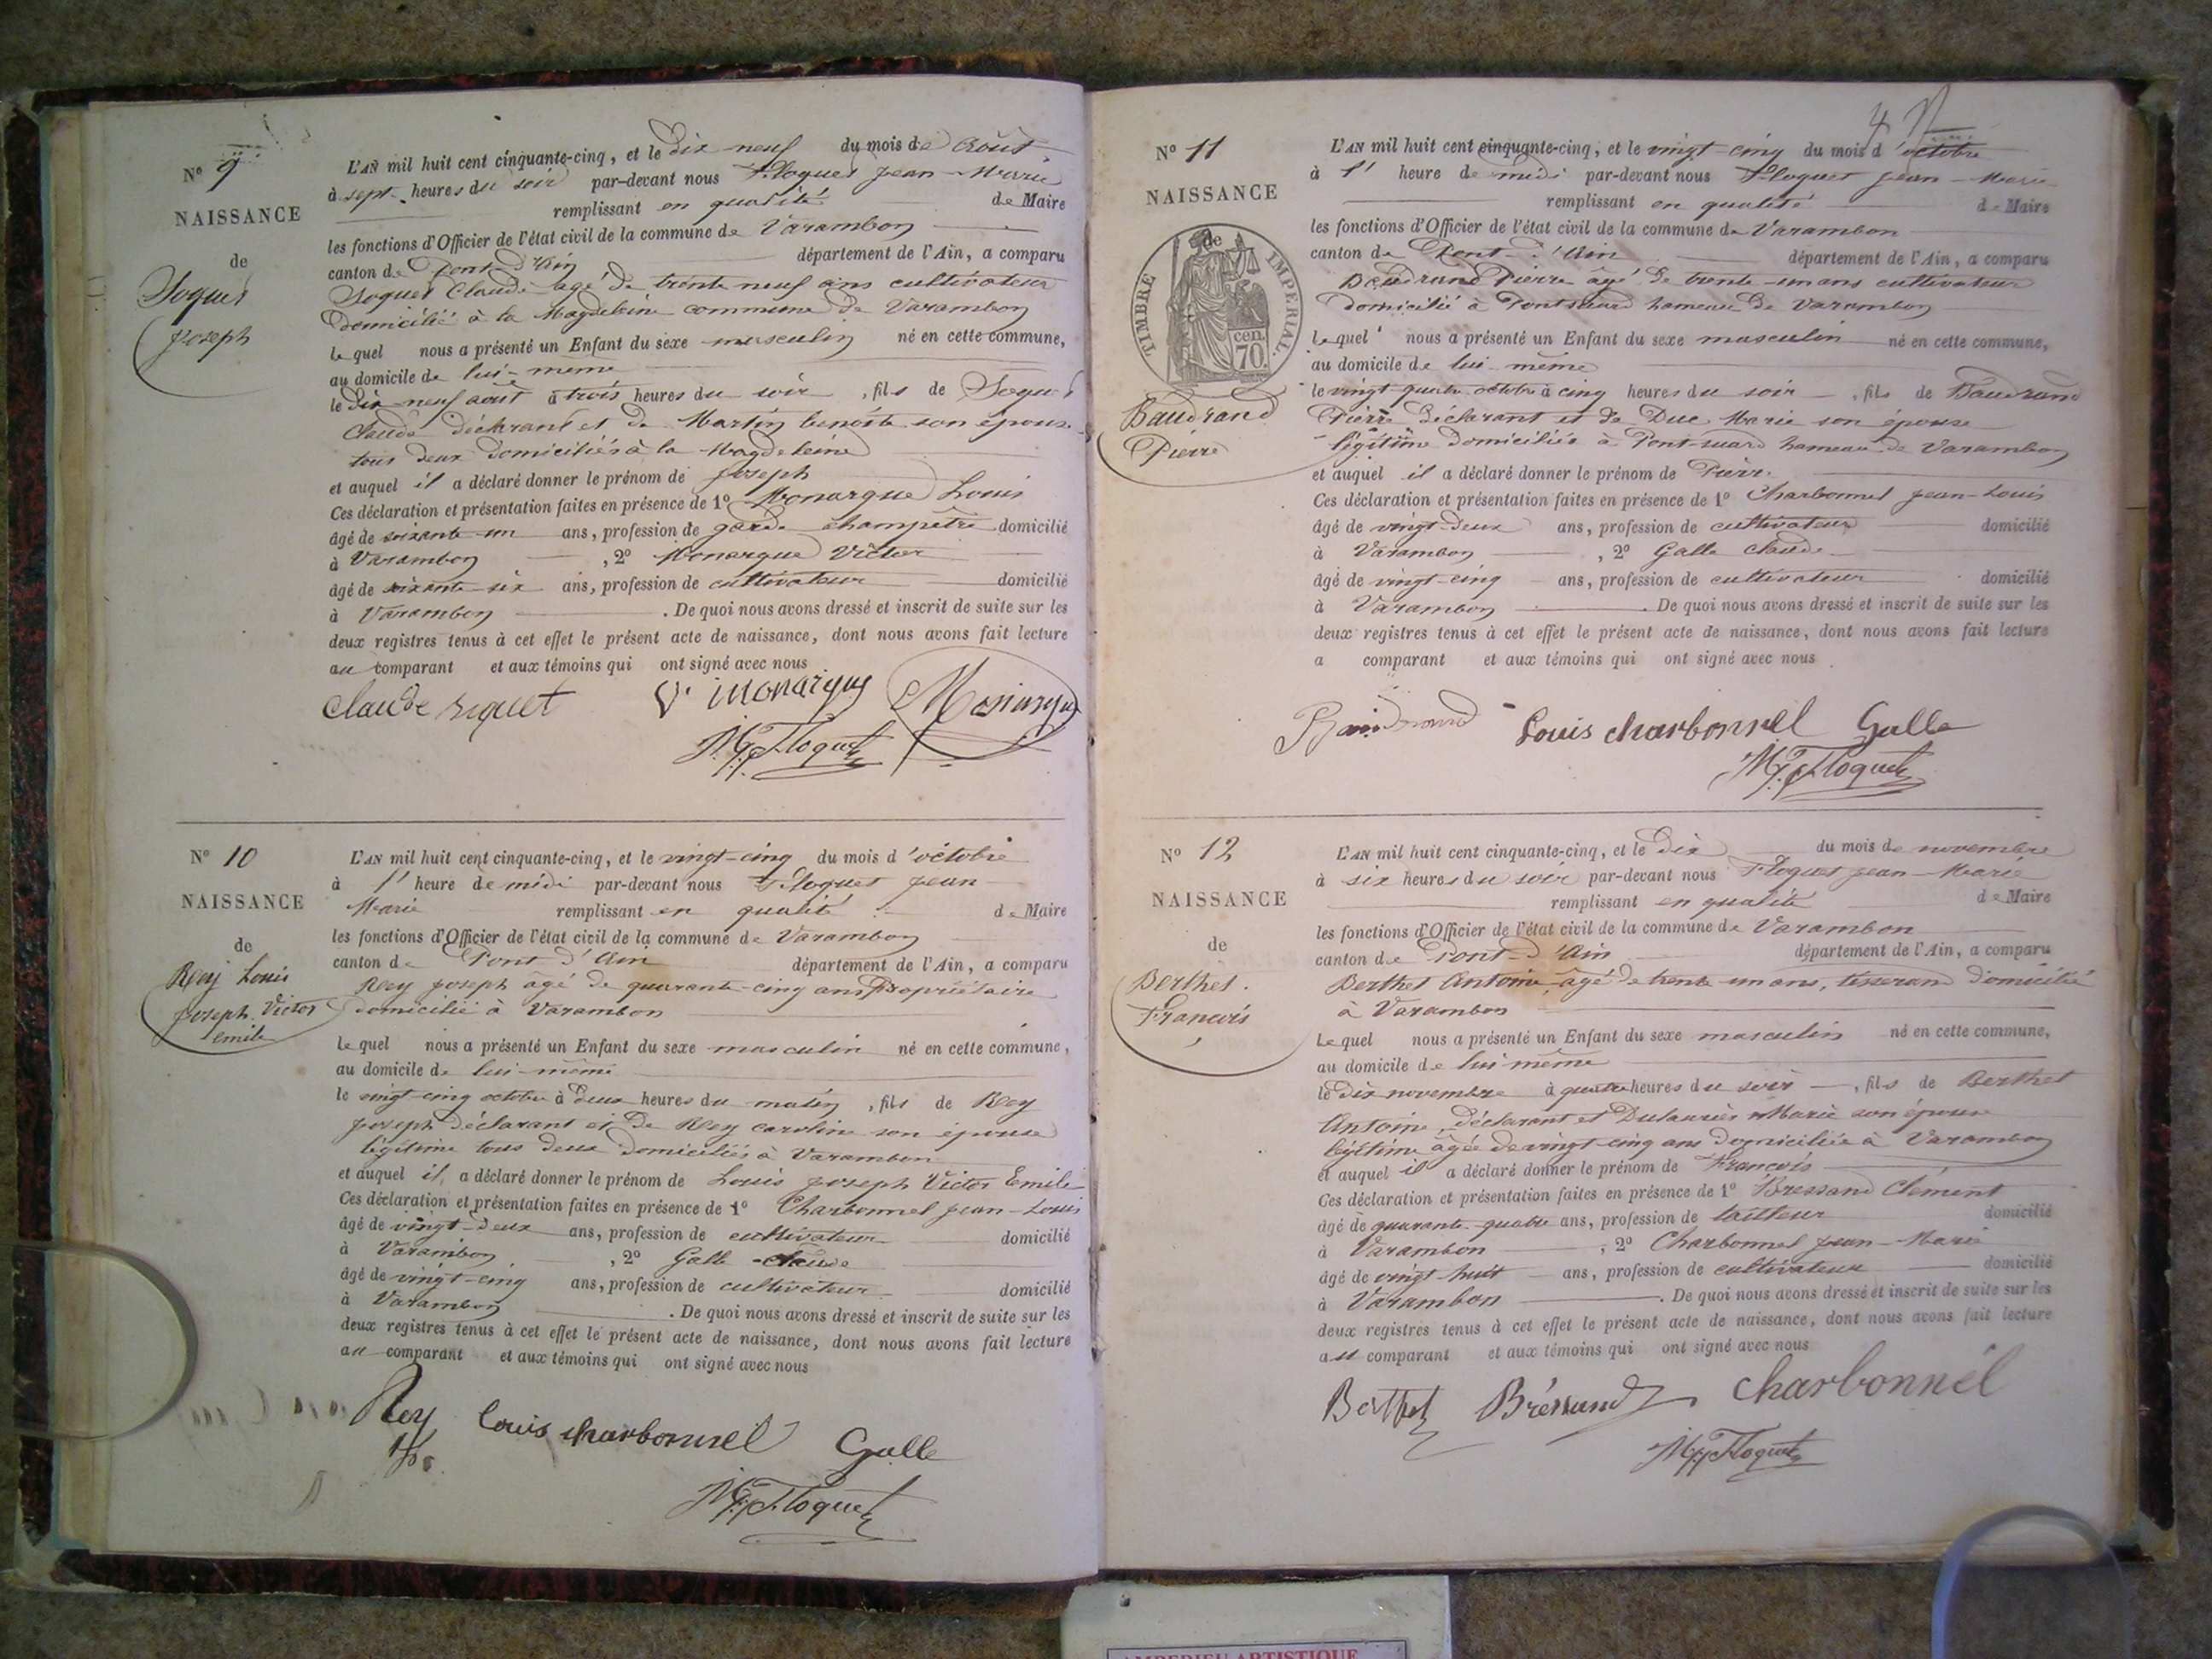 N° 9
NAISSANCE
de
Joseph
L'AN mil huit cent cinquante-cinq, et le dix neuf du mois de Août
à sept heures du soir par-devant nous Floquet Jean-Marie
remplissant en qualité de Maire
les fonctions d'Officier de l'état civil de la commune de Varambon
canton de Pont d'Ain département de l'Ain, a comparu
Claude agé de trente neuf ans cultivateur
Domicilié à la Magdeleine commune de Varambon
le quel nous a présenté un Enfant du sexe masculin né en cette commune,
au domicile de lui-même
le Dix neuf août à trois heures du soir, fils de
Claude déclarant et de Martin benoite son épouse
tous deux domiciliés à la Magdeleine
et auquel il a déclaré donner le prénom de Joseph
Ces déclaration et présentation faites en présence de 1° Monarque Louis
âgé de soixante un ans, profession de garde champêtre domicilié
à Varambon, 2° Monarque Victor
âgé de soixante-six ans, profession de cultivateur domicilié
à Varambon. De quoi nous avons dressé et inscrit de suite sur les
deux registres tenus à cet effet le présent acte de naissance, dont nous avons fait lecture
au comparant et aux témoins qui ont signé avec nous
Claude V. Monarque Monarque
Floquet
N° 10
NAISSANCE
de
Rey Louis
Joseph Victor
emile
L'AN mil huit cent cinquante-cinq, et le vingt-cinq du mois d'octobre
à l' heure de midi par-devant nous Floquet Jean-
Marie remplissant en qualité de Maire
les fonctions d'Officier de l'état civil de la commune de Varambon
canton de Pont d'Ain département de l'Ain, a comparu
Rey Joseph âgé de quarante-cinq ans Propriétaire
domicilié à Varambon
le quel nous a présenté un Enfant du sexe masculin né en cette commune,
au domicile de lui-même
le vingt-cinq octobre à deux heures du matin, fils de Rey
Joseph déclarant et de Rey caroline son épouse
légitime tous deux domiciliés à Varambon
et auquel il a déclaré donner le prénom de Louis Joseph Victor Emile
Ces déclaration et présentation faites en présence de 1° Charbonnel Jean-Louis
âgé de vingt-deux ans, profession de cultivateur domicilié
à Varambon, 2° Galle claude
âgé de vingt-cinq ans, profession de cultivateur domicilié
à Varambon. De quoi nous avons dressé et inscrit de suite sur les
deux registres tenus à cet effet le présent acte de naissance, dont nous avons fait lecture
au comparant et aux témoins qui ont signé avec nous
Rey Louis charbonnel Galle
Floquet
N° 11
NAISSANCE
de
TIMBRE IMPERIAL
70 cen.
Baudrand
Pierre
L'AN mil huit cent cinquante-cinq, et le vingt-cinq du mois d'octobre
à l' heure de midi par-devant nous Floquet Jean-Marie
remplissant en qualité de Maire
les fonctions d'Officier de l'état civil de la commune de Varambon
canton de Pont-d'Ain département de l'Ain, a comparu
Baudrand Pierre âgé de trente-un ans cultivateur
domicilié à Pontsuard hameau de Varambon
le quel nous a présenté un Enfant du sexe masculin né en cette commune,
au domicile de lui-même
le vingt-quatre octobre à cinq heures du soir, fils de Baudrand
Pierre déclarant et de Duc Marie son épouse
légitime domiciliés à Pont-suard hameau de Varambon
et auquel il a déclaré donner le prénom de Pierre
Ces déclaration et présentation faites en présence de 1° Charbonnel Jean-Louis
âgé de vingt-deux ans, profession de cultivateur domicilié
à Varambon, 2° Galle claude
âgé de vingt-cinq ans, profession de cultivateur domicilié
à Varambon. De quoi nous avons dressé et inscrit de suite sur les
deux registres tenus à cet effet le présent acte de naissance, dont nous avons fait lecture
a comparant et aux témoins qui ont signé avec nous
Baudrand Louis charbonnel Galle
Floquet
N° 12
NAISSANCE
de
Berthet
François
L'AN mil huit cent cinquante-cinq, et le Dix du mois de novembre
à six heures du soir par-devant nous Floquet Jean-Marie
remplissant en qualité de Maire
les fonctions d'Officier de l'état civil de la commune de Varambon
canton de Pont-d'Ain département de l'Ain, a comparu
Berthet Antoine, âgé de trente un ans, tisserand domicilié
à Varambon
le quel nous a présenté un Enfant du sexe masculin né en cette commune,
au domicile de lui même
le dix novembre à quatre heures du soir, fils de Berthet
Antoine, déclarant et Marie son épouse
légitime âgée de vingt-cinq ans domiciliée à Varambon
et auquel il a déclaré donner le prénom de François
Ces déclaration et présentation faites en présence de 1° Bressand Clément
âgé de quarante-quatre ans, profession de tailleur domicilié
à Varambon, 2° Charbonnel Jean-Marie
âgé de vingt-huit ans, profession de cultivateur domicilié
à Varambon. De quoi nous avons dressé et inscrit de suite sur les
deux registres tenus à cet effet le présent acte de naissance, dont nous avons fait lecture
au comparant et aux témoins qui ont signé avec nous
Berthet Bressand charbonnel
Floquet